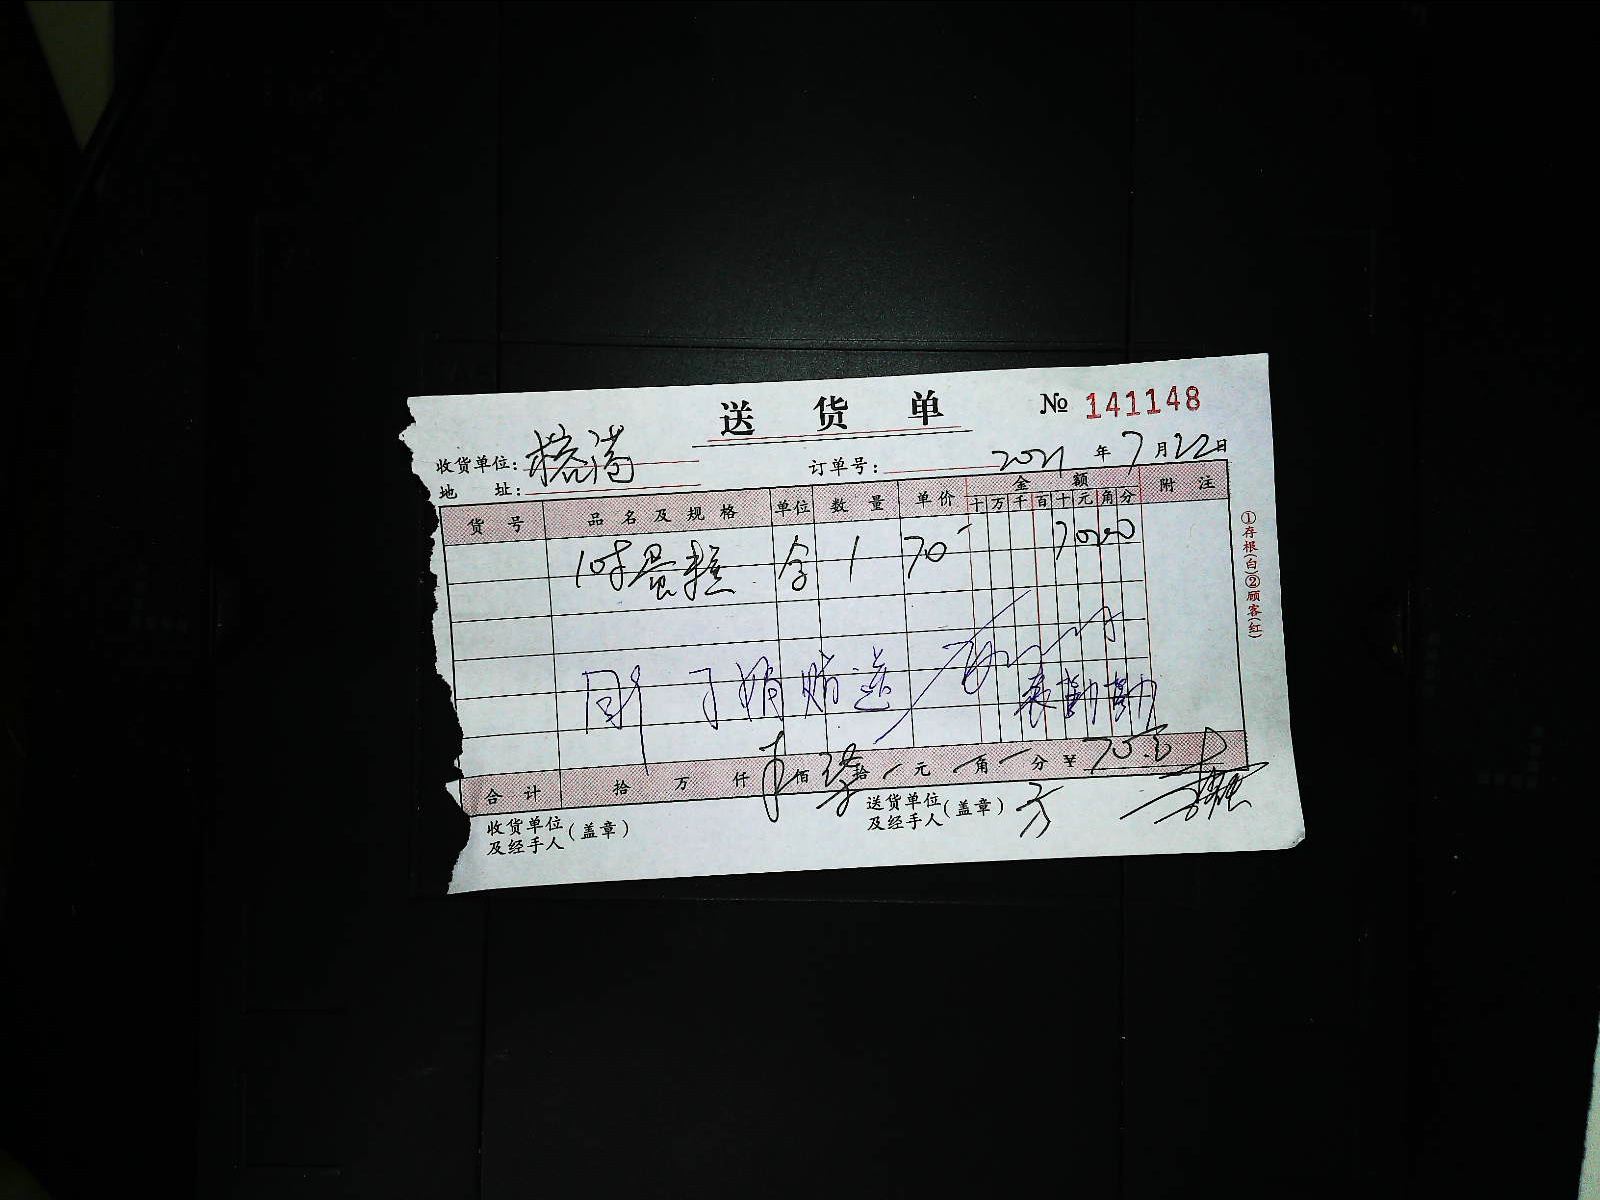 送货单 № 141148
收货单位：榕湾 订单号： 2021年7月22日
地址：
货号 品名及规格 单位 数量 单价 金额 附注
十万千百十元角分
10寸蛋糕 个 1 70 7000
于娟 赠送
袁勤勤
合计 拾 万 仟 佰 柒拾 元 角 分 ¥ 70元
收货单位及经手人（盖章） 送货单位及经手人（盖章）方
①存根（白）②顾客（红）